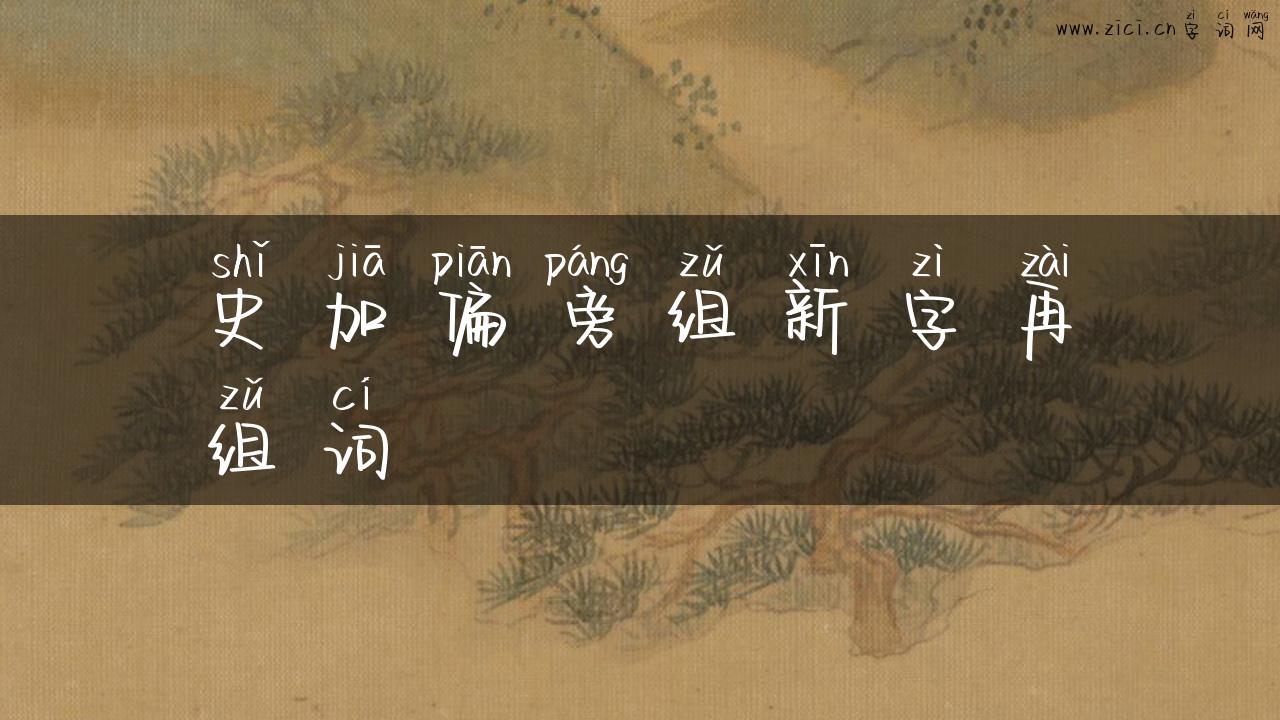 zì cí wǎng
www.zici.cn 字词网
shǐ jiā piān páng zǔ xīn zì zài
史加偏旁组新字再
zǔ cí
组词